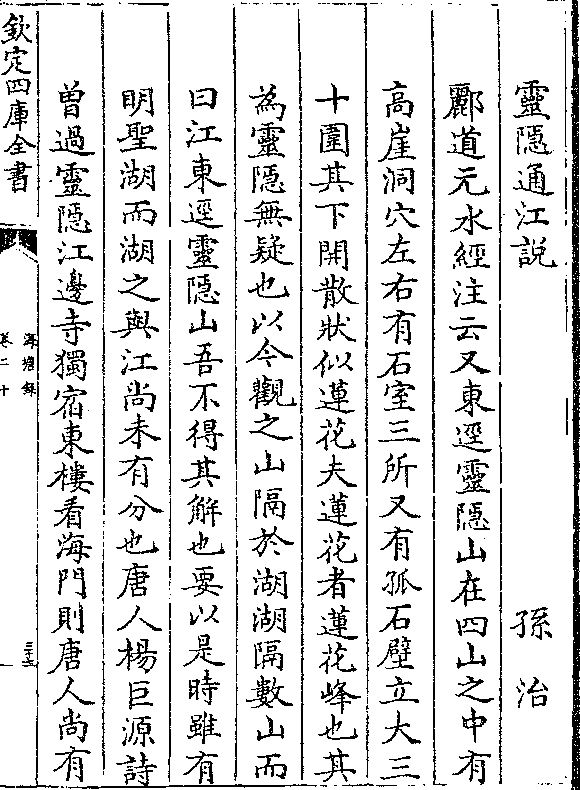 靈隱通江說 孫治
酈道元水經注云又東逕靈隱山在四山之中有
高崖洞穴左右有石室三所又有孤石壁立大三
十圍其下開散狀似蓮花夫蓮花者蓮花峰也其
為靈隱無疑也以今觀之山隔於湖湖隔數山而
曰江東逕靈隱山吾不得其解也要以是時雖有
明聖湖而湖之與江尚未有分也唐人楊巨源詩
曽過靈隱江邊寺獨宿東樓看海門則唐人尚有
欽定四庫全書
海塘録
卷二十
三十五